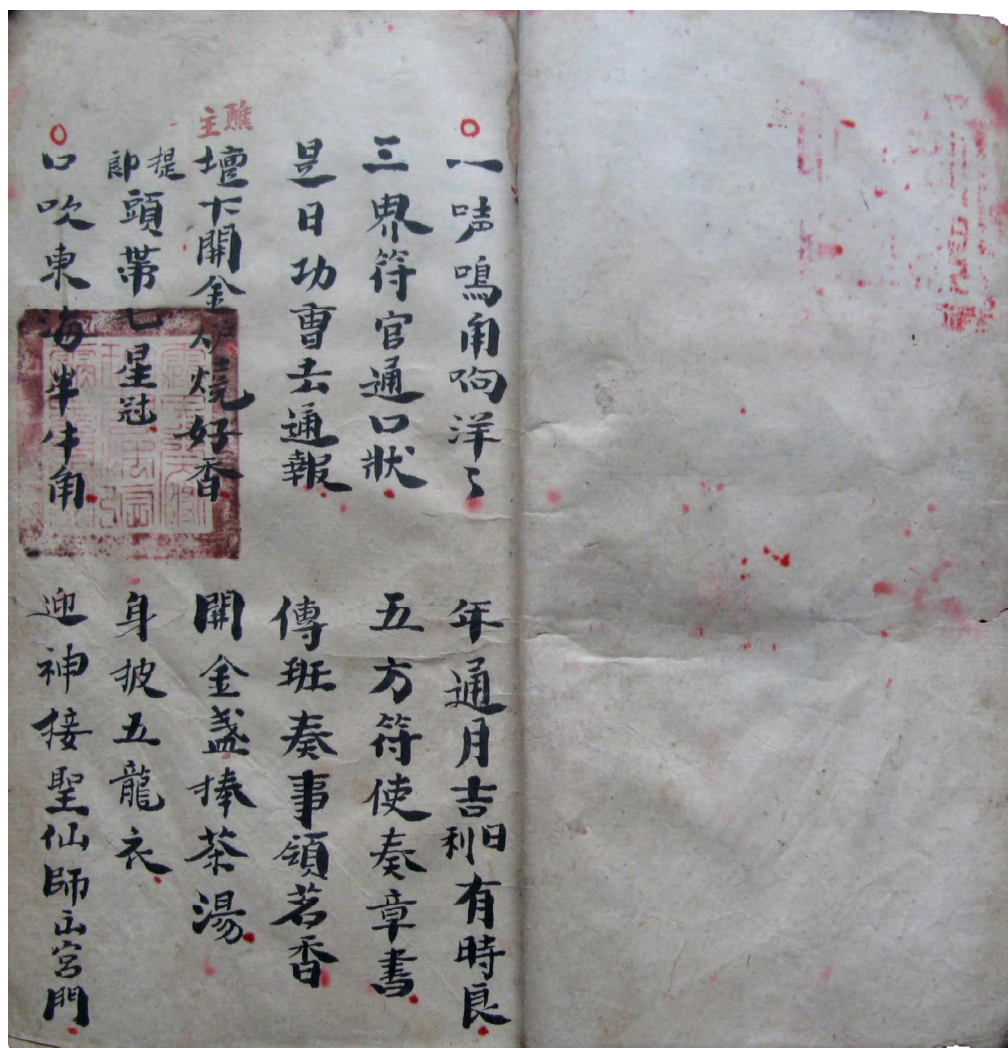 一声鳴角响洋〻 年通月吉日利有時良
三界符官通口狀 五方符使奏章書
是日功曹去通報 傳班奏事領茗香
醮主
壇下開金炉燒好香 開金盞捧茶湯
提
即頭帯七星冠 身披五龍衣
口吹東海犀牛角 迎神接聖仙師出宮門